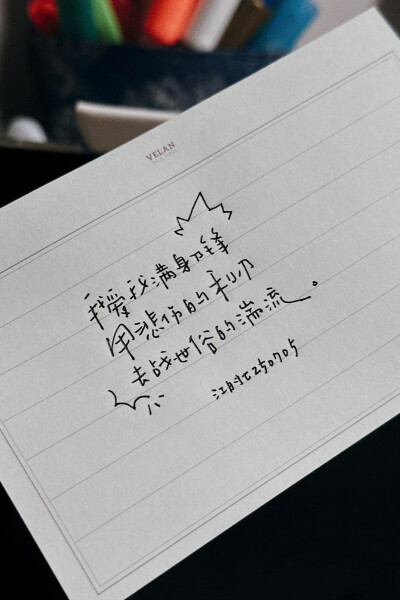 VELAN
我爱我满身刀锋
用悲伤的利刃
去战世俗的湍流。
250705